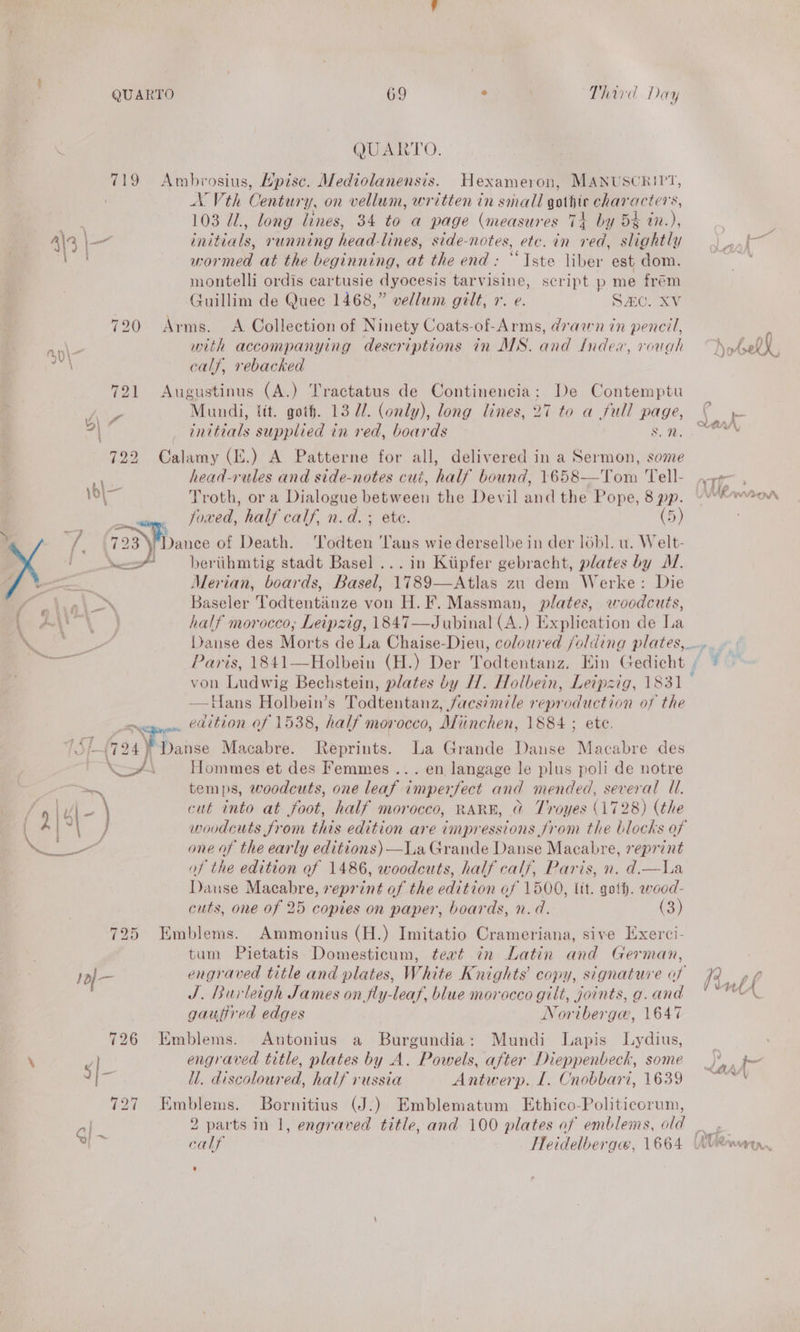 QUARTO 69 Third Day
QUARTO.
719 Ambrosius, Episc. Mediolanensis. Hexameron, MANUSCRIPT,
XVth Century, on vellum, written in small gothic characters,
103 ll., long lines, 34 to a page (measures 7¼ by 5¾ in.),
initials, running head-lines, side-notes, etc. in red, slightly
wormed at the beginning, at the end: “Iste liber est dom.
montelli ordis cartusie dyocesis tarvisine, script p me frēm
Guillim de Quec 1468,” vellum gilt, r. e. SÆC. XV
720 Arms. A Collection of Ninety Coats-of-Arms, drawn in pencil,
with accompanying descriptions in MS. and Index, rough
calf, rebacked
721 Augustinus (A.) Tractatus de Continencia; De Contemptu
Mundi, lit. goth. 13 ll. (only), long lines, 27 to a full page,
initials supplied in red, boards S. N.
722 Calamy (E.) A Patterne for all, delivered in a Sermon, some
head-rules and side-notes cut, half bound, 1658—Tom Tell-
Troth, or a Dialogue between the Devil and the Pope, 8 pp.
foxed, half calf, n.d.; etc. (5)
723 Dance of Death. Todten Tans wie derselbe in der löbl. u. Welt-
berühmtig stadt Basel ... in Küpfer gebracht, plates by M.
Merian, boards, Basel, 1789—Atlas zu dem Werke: Die
Baseler Todtentänze von H. F. Massman, plates, woodcuts,
half morocco, Leipzig, 1847—Jubinal (A.) Explication de La
Danse des Morts de La Chaise-Dieu, coloured folding plates,
Paris, 1841—Holbein (H.) Der Todtentanz. Ein Gedicht
von Ludwig Bechstein, plates by H. Holbein, Leipzig, 1831
—Hans Holbein’s Todtentanz, facsimile reproduction of the
edition of 1538, half morocco, München, 1884; etc.
724 Danse Macabre. Reprints. La Grande Danse Macabre des
Hommes et des Femmes ... en langage le plus poli de notre
temps, woodcuts, one leaf imperfect and mended, several ll.
cut into at foot, half morocco, RARE, à Troyes (1728) (the
woodcuts from this edition are impressions from the blocks of
one of the early editions)—La Grande Danse Macabre, reprint
of the edition of 1486, woodcuts, half calf, Paris, n. d.—La
Danse Macabre, reprint of the edition of 1500, lit. goth. wood-
cuts, one of 25 copies on paper, boards, n. d. (3)
725 Emblems. Ammonius (H.) Imitatio Crameriana, sive Exerci-
tum Pietatis Domesticum, text in Latin and German,
engraved title and plates, White Knights’ copy, signature of
J. Burleigh James on fly-leaf, blue morocco gilt, joints, g. and
gauffred edges Noribergæ, 1647
726 Emblems. Antonius a Burgundia: Mundi Lapis Lydius,
engraved title, plates by A. Powels, after Dieppenbeck, some
ll. discoloured, half russia Antwerp. I. Cnobbari, 1639
727 Emblems. Bornitius (J.) Emblematum Ethico-Politicorum,
2 parts in 1, engraved title, and 100 plates of emblems, old
calf Heidelbergæ, 1664